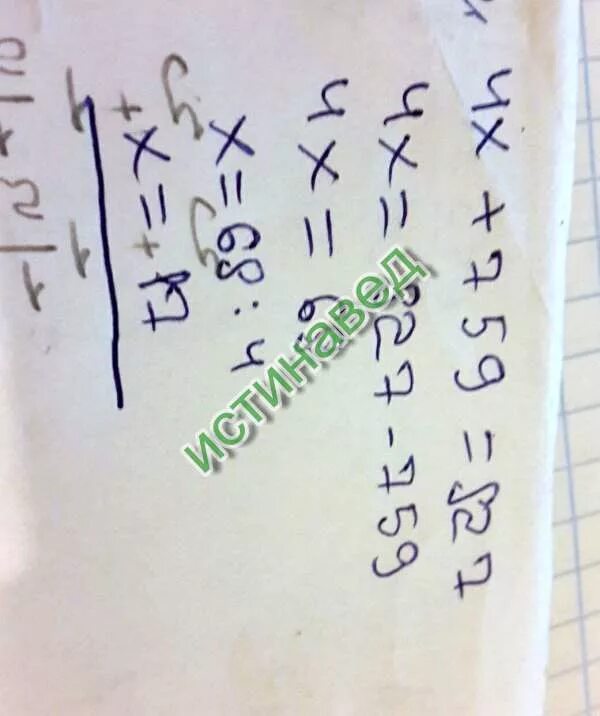 4x + 759 = 827
4x = 827 - 759
4x = 68
x = 68 : 4
x = 17
ИСТИНАВЕД